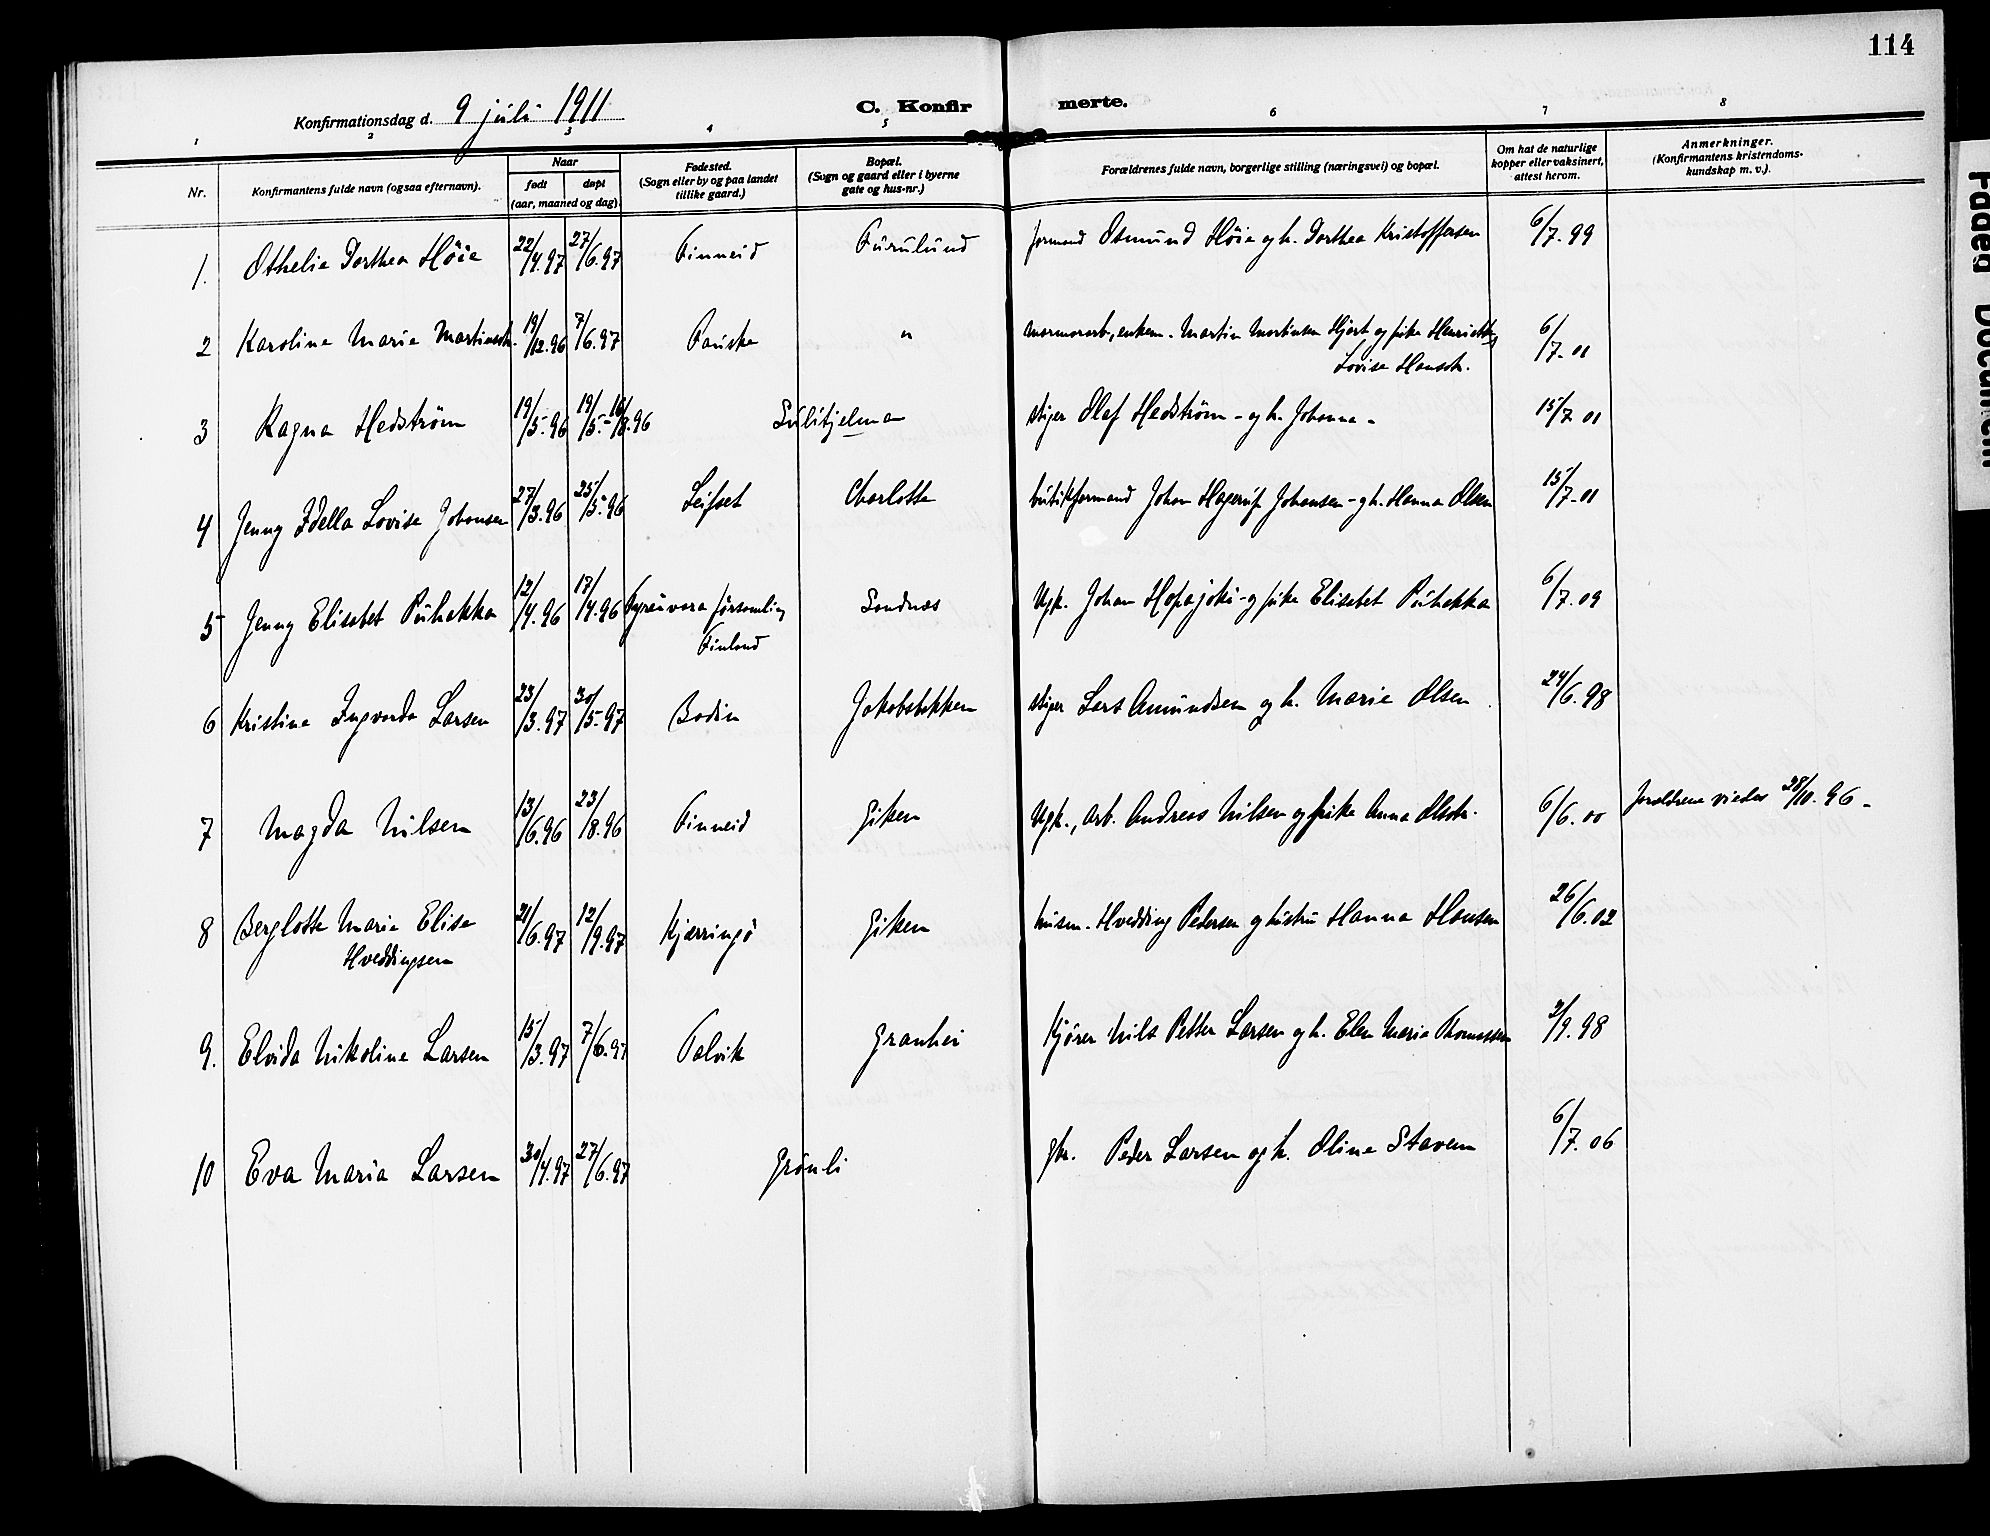 114
Konfirmationsdag d. 9 juli 1911
C. Konfirmerte.
1 2 3 4 5 6 7 8
Nr. Konfirmantens fulde navn (ogsaa efternavn). Naar født døpt (aar, maaned og dag). Fødested. (Sogn eller by og paa landet tillike gaard.) Bopæl. (Sogn og gaard eller i byerne gate og hus-nr.) Forældrenes fulde navn, borgerlige stilling (næringsvei) og bopæl. Om hat de naturlige kopper eller vaksinert, attest herom. Anmerkninger. (Konfirmantens kristendomskundskap m. v.).
1. Othelie Dorthea Høie 22/4.97 27/6.97 Finneid Furulund formand Osmund Høie og h. Dorthea Kristoffersen 6/7.99
2 Karoline Marie Martinsdtr. 19/12.96 7/6.97 Fauske " marmorarb., enkem. Martin Martinsen Hjort og pike Henriette
Lovise Hansdtr. 6/7-01
3 Ragna Hedstrøm 19/5-96 19/5-16/8.96 Sulitjelma stiger Olaf Hedstrøm - og h. Johanna - 15/7 01
4 Jenny Idella Lovise Johansen 27/3.96 25/5.96 Leifset Charlotta butikformand Johan Hagerup Johansen - og h. Hanna Olsen 15/7-01
5 Jenny Elisabet Puhakka 12/4.96 13/4.96 forsamling
Finland Sandnæs Ugk. Johan Hopajoki - og pike Elisabet Puhakka 6/7.09
6 Kristine Ingvarda Larsen 23/3.97 30/5-97 Bodin Jakobsbakken stiger Lars Amundsen og h. Marie Olsen 24/6.98
7 Magda Nilsen 13/6.96 23/8.96 Finneid Giken Ugk., arb. Andreas Nilsen og pike Anna Olsdtr. 6/6.00 foreldrene viedes 28/10.96 -
8 Berglotte Marie Elise
Hveddingsen 21/6.97 12/9.97 Kjærringø Giken husm. Hvedding Pedersen og hustru Hanna Hansen 26/6.02
9. Elvida Nikoline Larsen 15/3.97 7/6.97 Talvik Granhei Kjører Nils Petter Larsen og h. Elen Marie Thomassen 2/9.98
10 Eva Maria Larsen 30/4.97 27/6.97 Grønli gbr. Peder Larsen og h. Oline Staven 6/7.06
Faded Document